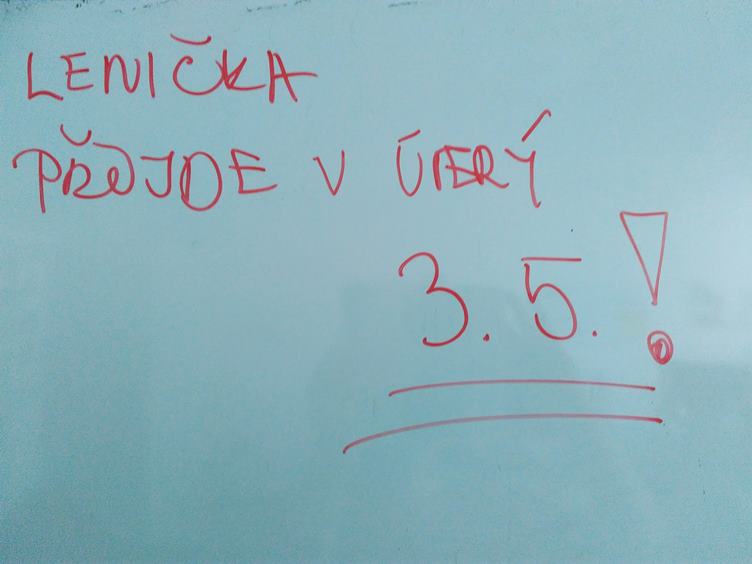 LENIČKA
PŘIJDE V ÚTERÝ
3.5.!